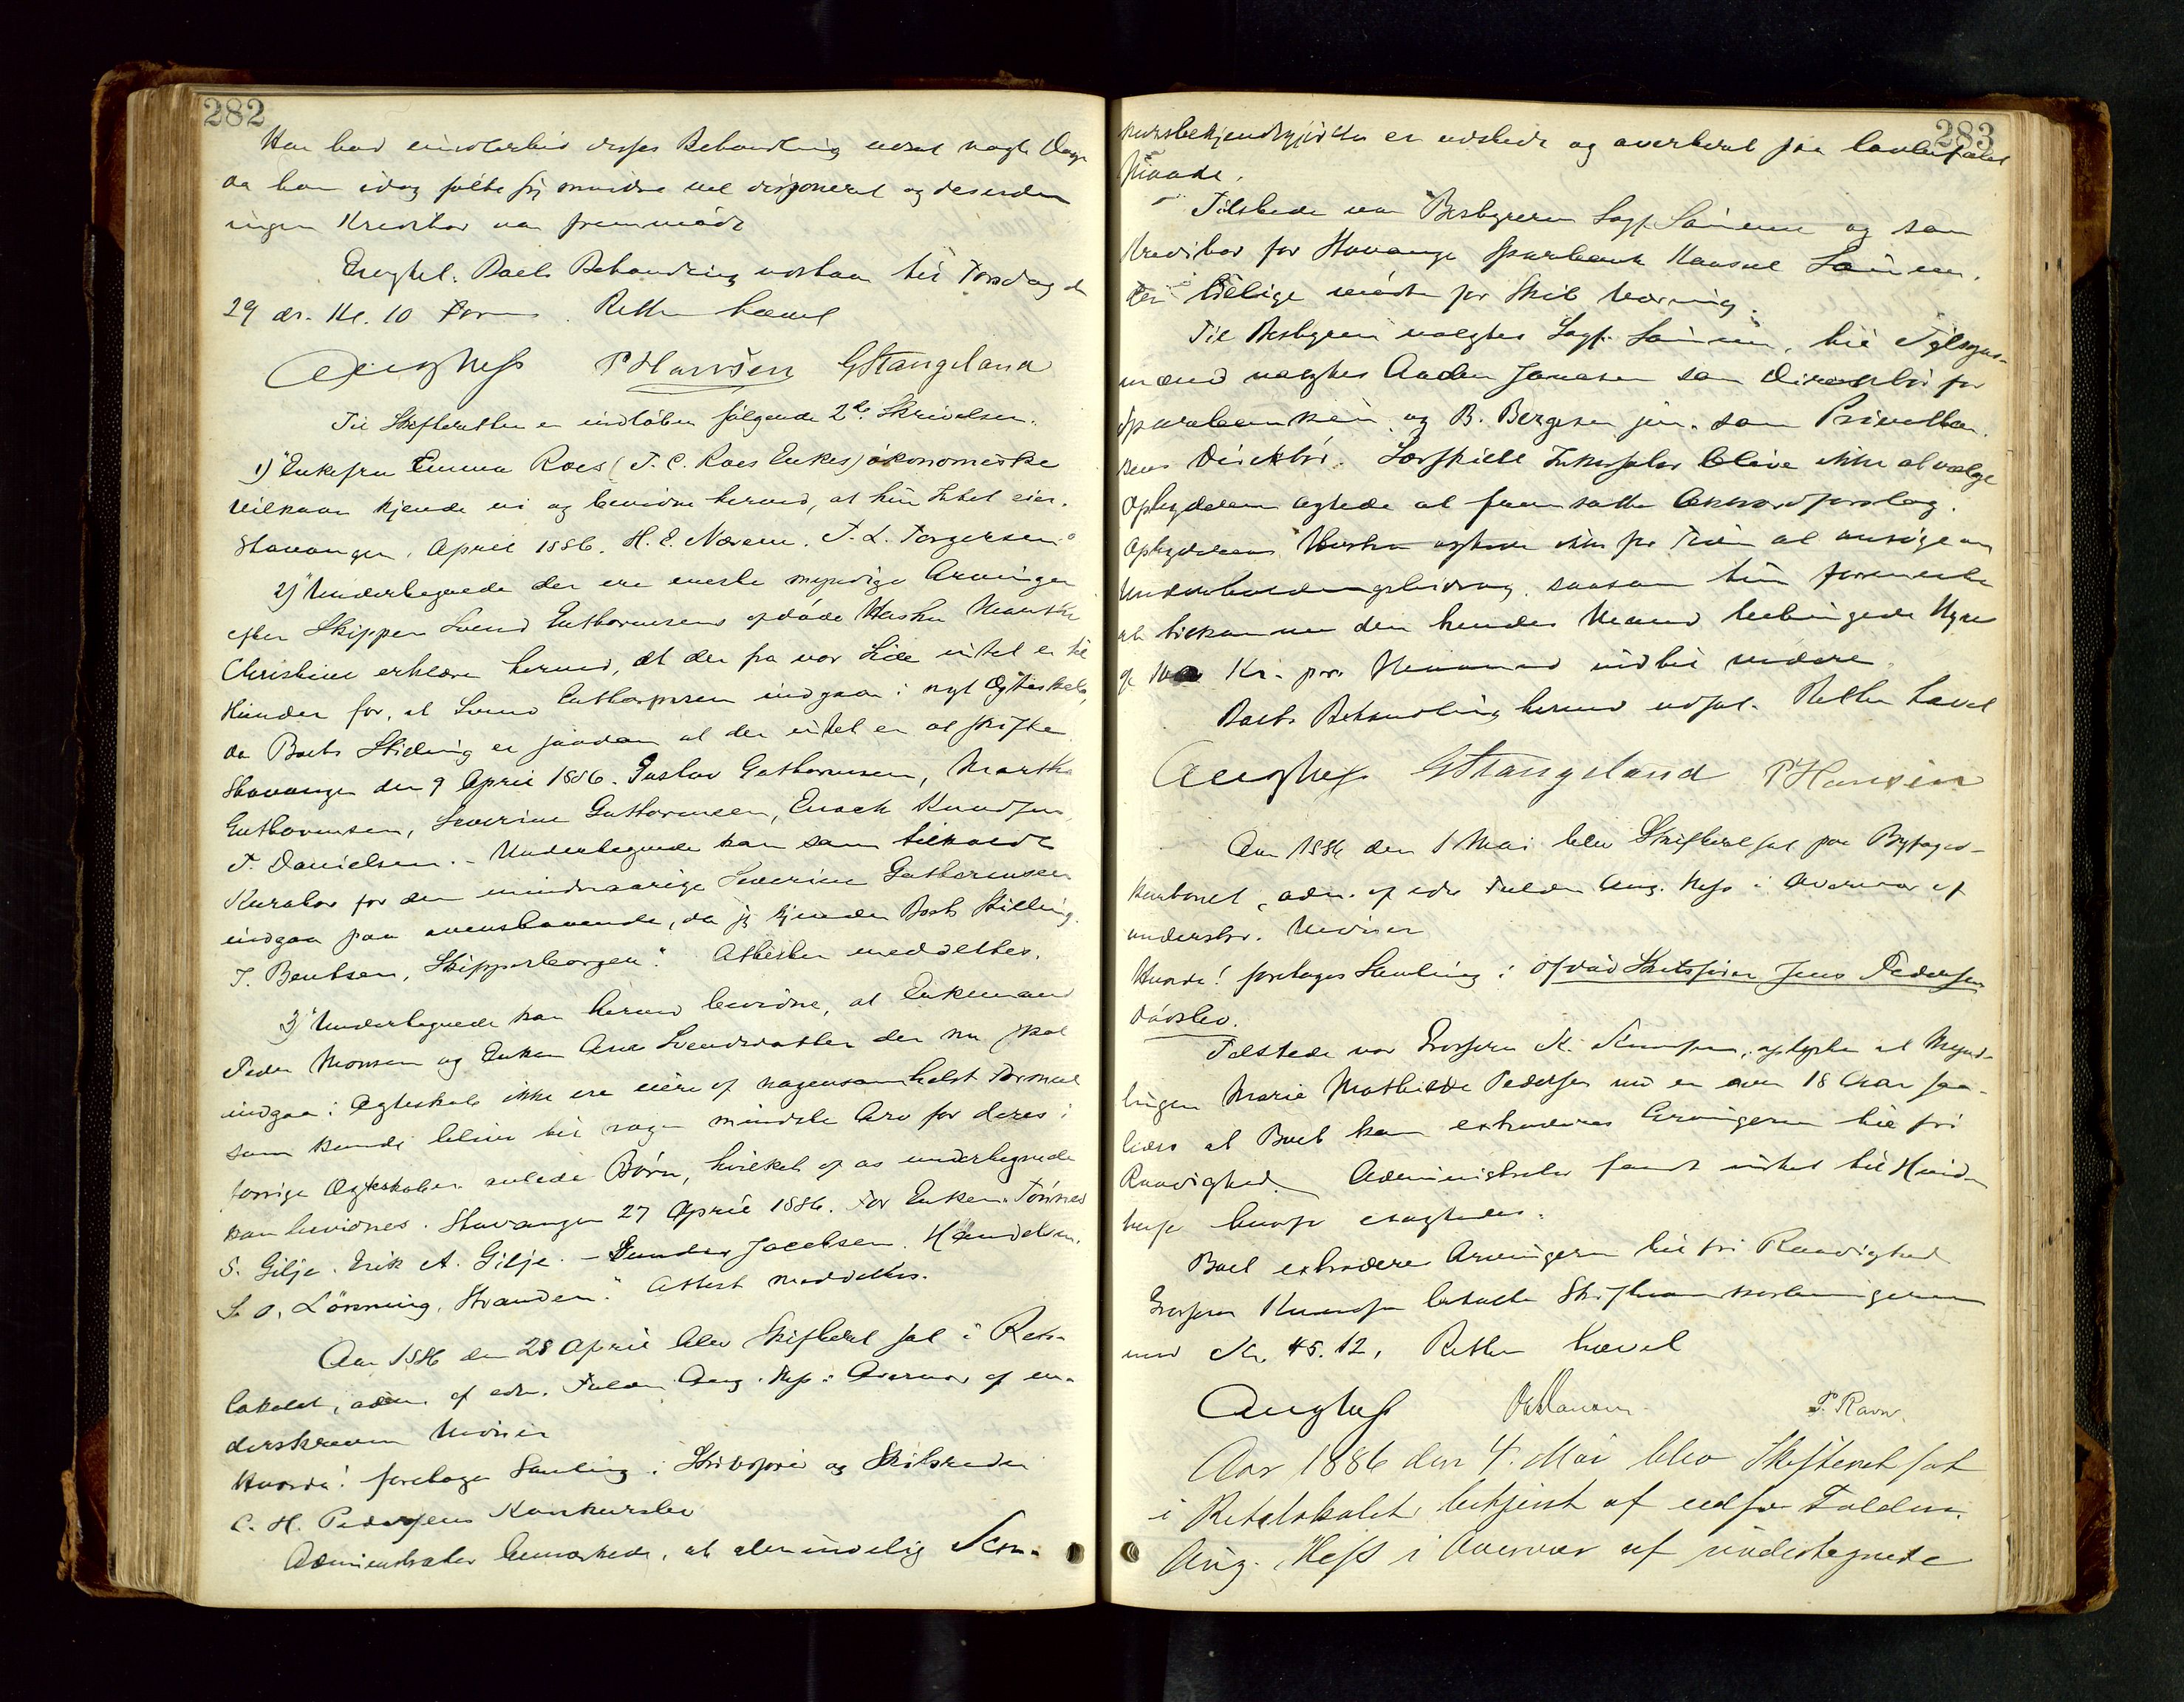 282
Han bad imidlertid disses Behandling udsat nogle Dage
da han idag følte sig mindre vel disponeret og desuden
ingen Kreditor var fremmødt
Eragtet: Boets Behandling udstaar til Torsdag d
29 ds. Kl. 10 Form. Retten hævet
Aug Hess P Hansen GStangeland
Til Skifteretten er indløben følgende 2de Skrivelser.
1) "Enkefru Emma Roes (T. C. Roes Enkes) økonomiske
Vilkaar kjende vi og bevidne herved, at hun Intet eier.
Stavanger, April 1886. H. E. Næsem. T. L. Torgersen."
2) "Undertegnede der ere eneste myndige Arvinger
efter Skipper Svend Guthormsens afdøde Hustru Marthe
Christine erklære herved, at der fra vor Side intet er til
Hinder for, at Svend Guthormsen indgaar i nyt Ægteskab,
da Boets Stilling er saadan at der intet er at skifte
Stavanger den 9 April 1886. Gustav Guthormsen, Marthe
Guthormsen, Severine Guthormsen, Enoch Knudsen,
T. Danielsen. - Undertegnede kan som tilkaldt
Kurator for den mindreaarige Severine Guthormsen
indgaa paa ovenstaaende, da jeg kjender Boets Stilling.
T. Bentsen, Skipperborgen." Attesten meddeltes.
3) "Undertegnede kan herved bevidne, at Enkemand
Peder Monsen og Enken Ane Svendsdatter der nu skal
indgaa i Ægteskab ikke ere eiere af nogensomhelst Formue
som kunde blive til nogen mindste Arv for deres i
forrige Ægteskaber avlede Børn, hvilket af os undertegnede
kan bevidnes. Stavanger 27 April 1886. For Enken: Tønnes
S. Gilje. Erik A. Gilje. - Gunder Jacobsen. Handelsm.
S. O. Lønning, Stranden." Attest meddeltes.
Aar 1886 den 28 April blev Skifteret sat i Rets-
lokalet, adm. af edsv. Fuldm. Aug. Hess i Overvær af un-
derskrevne Vidner
Hvorda! foretages Samling i Skibsfører og Skibsreder
C. H. Pedersens Konkursbo
Administrator bemærkede, at almindelig Kon-
283
kursbekjendtgjørelse er udstedt og averteret paa lovbefalet
Maade.
Tilstede var Bestyreren Sagf. Sømme og som
Kreditor for Stavanger Sparebank Konsul Sømme,
der tillige mødte for Skib Værning.
Til Bestyrer valgtes Sagf. Sømme, til Tilsyns-
mænd valgtes Anders Jonasen som Direktør for
Sparebanken og B. Bergesen jun. som Privatban-
kens Direktør. Særskilt Inkasator bleve ikke at vælge
Opbyderen agtede at fremsatte Akkordforslag.
Opbyderens Hustru agtede ikke for Tiden at ansøge om
Underholdningsbidrag, saasom hun formente
at tilkomme den hendes Mand betingede Hyre
af Kr. pr. Maaned indtil videre.
Boets Behandling herved udsat. Retten hævet
Aug Hess GStangeland P Hansen
Aar 1886 den 1 Mai blev Skifteret sat paa Byfoged-
kontoret, adm. af edsv Fuldm Aug. Hess i Overvær af
underskr. Vidner
Hvorda! foretages Samling i Afdød Skibsfører Jens Pedersens
Dødsbo.
Tilstede var Grosserer K. Knudsen, oplyste at Mynd-
lingen Marie Mathilde Pedersen nu er over 18 Aar saa-
ledes at Boet kan extraderes Arvingerne til fri
Raadighed. Administrator fandt intet til Hinder
herfor hvorfor eragtedes:
Boet extraderes Arvingerne til fri Raadighed
Grosserer Knudsen betalte Skifteomkostningerne
med Kr. 45.12. Retten hævet
Aug Hess P Hansen T. Ravn.
Aar 1886 den 4. Mai blev Skifteret sat
i Retslokalet, betjent af edsv Fuldm.
Aug. Hess i Overvær af undertegnede